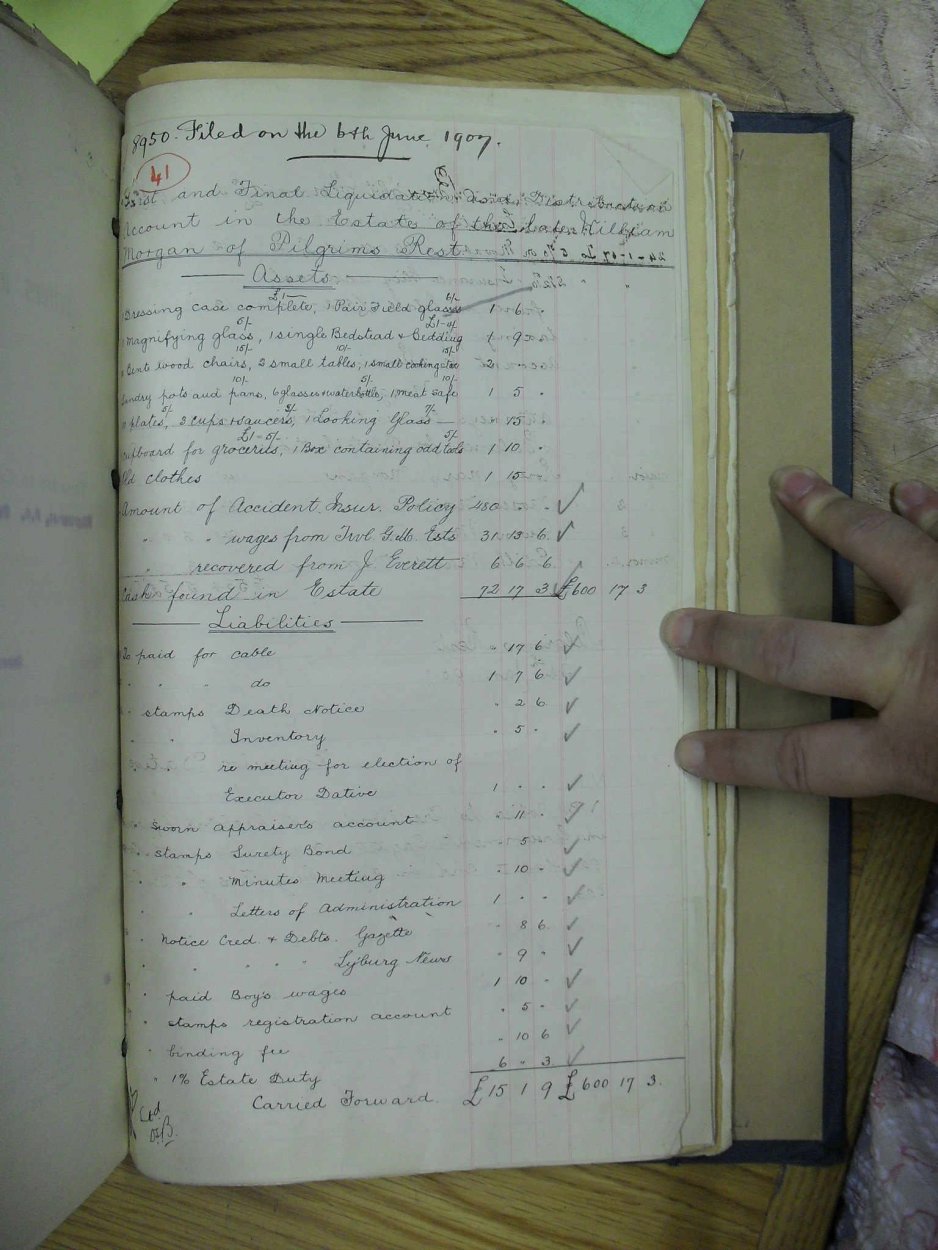 8950. Filed on the 6th June. 1907.
41
First and Final Liquidation and Distribution
Account in the Estate of the Late William
Morgan of Pilgrims Rest.
Assets
£1— 6/-
1 Dressing case complete, 1 Pair Field glasses 1 6 .
5/- £1-4/-
1 Magnifying glass, 1 single Bedstead & Bedding 1 9 .
15/- 10/- 15/-
Bent wood chairs, 2 small tables, 1 small cooking stove 2 . .
10/- 5/- 10/-
Sundry pots and pans, 6 glasses & waterbottle, 1 meat safe 1 5 .
5/- 3/- 7/-
plates, 3 cups & saucers, 1 Looking Glass — " 15 .
£1-5/- 5/-
cupboard for groceries, 1 Box containing odd tools 1 10 .
Old clothes 1 15 .
Amount of Accident Insur. Policy 480 . . ✓
" " wages from Trvl G.M. Ests 31 13 6 ✓
" recovered from J. Everett 6 6 6 ✓
Cash found in Estate 72 17 3 ✓ £600 17 3
Liabilities
To paid for cable " 17 6 ✓
" " " do 1 7 6 ✓
" stamps Death Notice " 2 6 ✓
" " Inventory " 5 . ✓
re meeting for election of
Executor Dative 1 . . ✓
" Sworn Appraiser's account " 11 . ✓
" stamps Surety Bond " 5 . ✓
" " Minutes Meeting " 10 . ✓
" " Letters of Administration 1 . . ✓
" Notice Cred. & Debts. Gazette " 8 6 ✓
" " " " " Lyburg News " 9 . ✓
" paid Boy's wages 1 10 . ✓
" stamps registration account " 5 . ✓
" binding fee " 10 6 ✓
" 1% Estate Duty 6 " 3 ✓
Carried Forward. £15 1 9 £600 17 3.